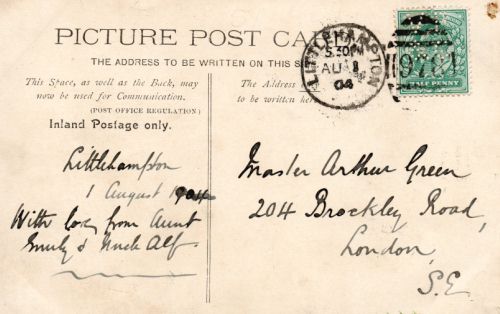 PICTURE POST CA
THE ADDRESS TO BE WRITTEN ON THIS S
This Space, as well as the Back, may
now be used for Communication.
(POST OFFICE REGULATION)
Inland Postage only.
The Address
to be written here
LITTLEHAMPTON
5.30PM
AU 1
04
9784
HALF PENNY
Littlehampton
1 August 1904
With love from Aunt
Emily & Uncle Alf
Master Arthur Green
204 Brockley Road,
London,
S.E.